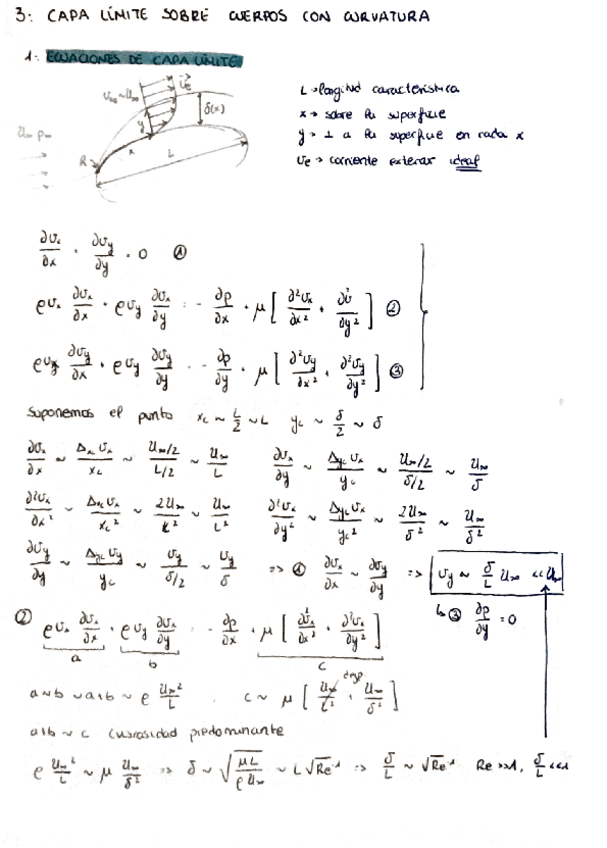 3: CAPA LÍMITE SOBRE CUERPOS CON CURVATURA
1: ECUACIONES DE CAPA LÍMITE
L → longitud característica
x → sobre la superficie
y → ⊥ a la superficie en cada x
Ue → corriente exterior ideal
U∞ P∞
δ(x)
R
x
y
L
∂υx/∂x + ∂υy/∂y = 0 ①
ρυx ∂υx/∂x + ρυy ∂υx/∂y = - ∂p/∂x + μ [ ∂²υx/∂x² + ∂²υ/∂y² ] ②
ρυx ∂υy/∂x + ρυy ∂υy/∂y = - ∂p/∂y + μ [ ∂²υy/∂x² + ∂²υy/∂y² ] ③
Suponemos el punto xc ~ L/2 ~ L yc ~ δ/2 ~ δ
∂υx/∂x ~ Δxc υx/xc ~ U∞/2 / L/2 ~ U∞/L ∂υx/∂y ~ Δyc υx/yc ~ U∞/2 / δ/2 ~ U∞/δ
∂²υx/∂x² ~ Δxc υx/xc² ~ 2U∞/L² ~ U∞/L² ∂²υx/∂y² ~ Δyc υx/yc² ~ 2U∞/δ² ~ U∞/δ²
∂υy/∂y ~ Δyc υy/yc ~ υy / δ/2 ~ υy/δ => ① ∂υx/∂x ~ ∂υy/∂y => υy ~ δ/L U∞ << U∞
↳ ③ ∂p/∂y = 0
② ρυx ∂υx/∂x + ρυy ∂υx/∂y = - ∂p/∂x + μ [ ∂²υx/∂x² + ∂²υx/∂y² ]
a b c
a ~ b ~ a+b ~ ρ U∞²/L , c ~ μ [ U∞/L² + U∞/δ² ]
desp.
a+b ~ c viscosidad predominante
ρ U∞²/L ~ μ U∞/δ² => δ ~ √(μL/ρU∞) ~ L √Re⁻¹ => δ/L ~ √Re⁻¹ Re >>1, δ/L <<1